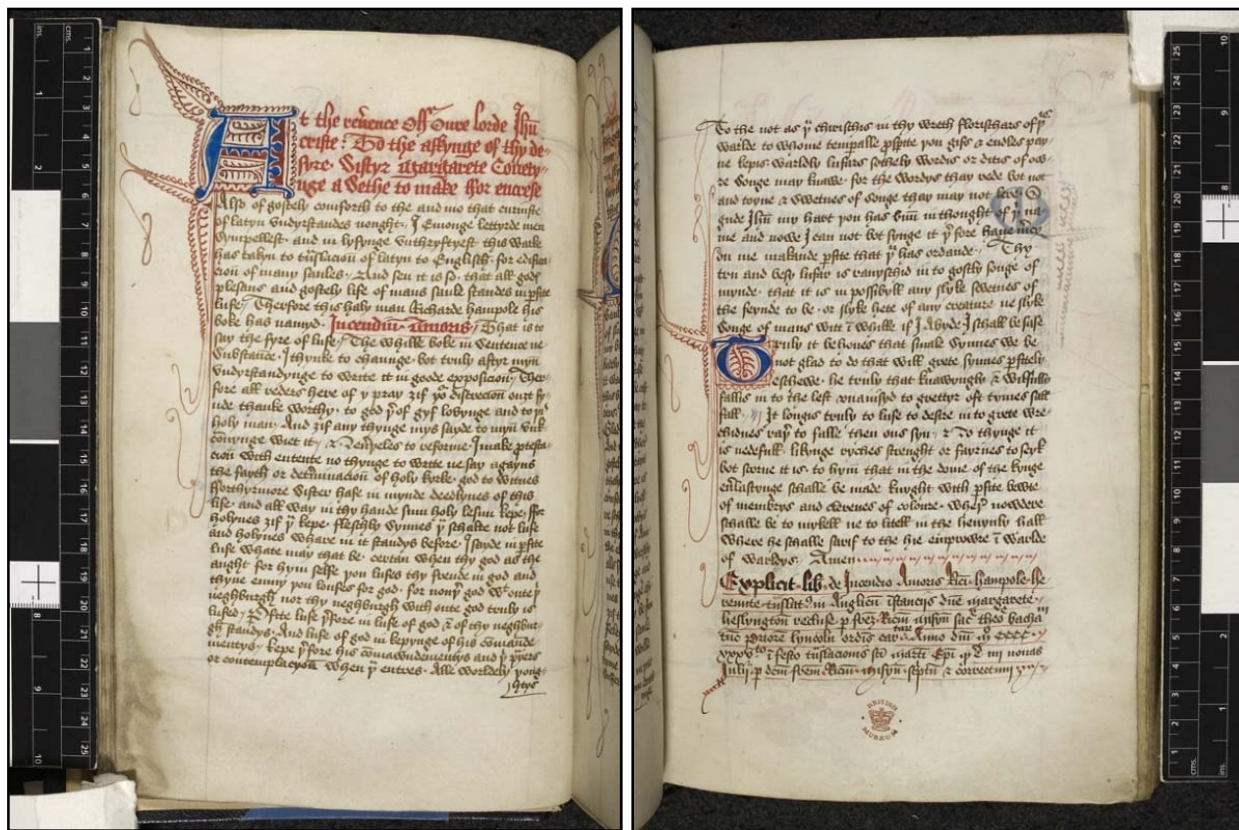 At the reuence off oure lorde Jhu
criste: To the askynge of thy de-
syre. Sistyr Margarete
a sethe to make ffor encrese
Also of gostely comforth to the and mo that curiuste
of latyn vndyrstandes noght. I Emonge lettyrde men
sympellest. and in lyfynge vnthryftyest this warke
has takyn to tnslacion of latyn to Englisch. for edifica
cion of many saules. And sen it is so. that all gode
plesans and gostely life of mans saule standes in pfite
lufe. Therfore this haly man Richarde hampole his
boke has namyd. Incendiu Amoris That is to
say the fyre of lufe. The whilk boke in sentence ne
substance. I thynke to chaunge. bot truly aftyr myn
vndyrstandynge to write it in goode exposicion. Ther-
fore all reders here of y pray zif yo discrecion ouzt fy-
nde thanke worthy. to god þof gyf lovynge and to þis
holy man. And zif any thynge mys sayde to myn vnk
conynge wiet it. reforme. I make ptesta-
cion with entente no thynge to write ne say agayns
the fayth or detminacion of holy kyrke. god to witnes
fforthyrmore Sister hafe in mynde deedlynes of this
life. and all way in thy hande sum holy lesun kepe. ffor
holynes zif þ kepe. fleschly synnes þ schalte not lufe
and holynes whare in it standys before. I sayde in pfite
lufe whate may that be. certan when thy god as the
aught for hym selfe þou lufes thy frende in god and
thyne enmy þou loufes for god. for nouþ god wt oute þ
neghburgh nor thy neghburgh with oute god truly is
lufed. Pfite lufe þfore in lufe of god & of thy neghbur-
gh standys. And lufe of god in kepynge of his comande
mentys. kepe þfore his comawndementys and þ pyers
or contemplacyon when þ entres. Alle worldely þong
htys
96
To the not as þ
warlde to whome tempalle psfite you gifs & endles pay-
ne lepis warldly lufars sothely wordis or ditis of ow-
re songe may knawe. for the wordys thay rede bot not
and toyne & swetnes of songe thay may not lere. O
gude Jhu my hart þou has bun in thought of þ na
me and nowe I can not bot synge it þfore haue mcy
on me makande pfite that þ has ordande. Thy
tru and besy lufar is rauyschid in to gostly songe of
mynde. that it is in possibyll any slyke swetnes of
the feynde to be. or slyke hete of any creature ne slyke
songe of mans witt i whilk if I abyde. I schall be safe
Truly it behoues that smale synnes we be
not glad to do that will grete synnes pfitely
eschewe. he truly that knawyngly & wilfully
fallis in to the lest vnauisyd to grettyr oft tymes sall
fall. It longis truly to lufe to desire in to grete wre-
chidnes raþ to falle then ons syn. & To thynge it
is nedefull. likynge ryches strenght or fayrnes to seyk
bot scorne it is. to hym that in the dome of the kynge
eulastynge schalle be made knyght with pfite bewte
of membrys and clerenes of coloure. wheþ nowdere
schalle be to mykell ne to litell in the heuynly hall
Where he schalle sarif to the hie emprowre i warlde
of warldys. Amen
Explicit lib. de Incendio Amoris Rici hampole he-
remite tnslat in Anglicu istancijs dne margarete
heslyngton recluse. p frez. Ricm misyn sac theo bacha
tuc Priore lyncoln ordis car. Anno dni m cccc
xxxv to i festo tnslacionis sti marti Epi q e iiii nonas
Julij. p dcm frem Ricm misyn. sciptu & correctum
BRITISH
MUSEUM